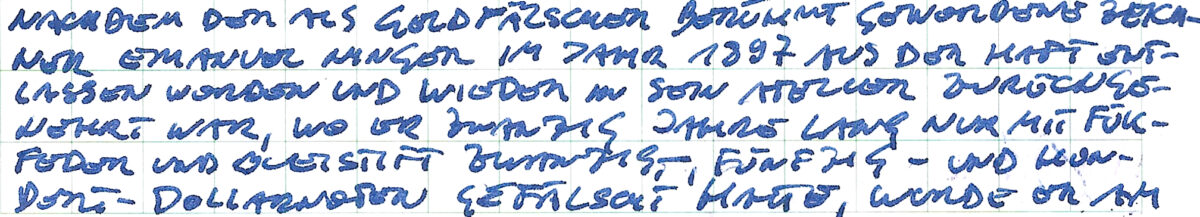 NACHDEM DER ALS GELDFÄLSCHER BERÜHMT GEWORDENE ZEICH-
NER EMANUEL NINGER IM JAHR 1897 AUS DER HAFT ENT-
LASSEN WORDEN UND WIEDER IN SEIN ATELIER ZURÜCKGE-
KEHRT WAR, WO ER ZWANZIG JAHRE LANG NUR MIT FÜLL-
FEDER UND BLEISTIFT ZWANZIG-, FÜNFZIG- UND HUN-
DERT-DOLLARNOTEN GEFÄLSCHT HATTE, WURDE ER AM